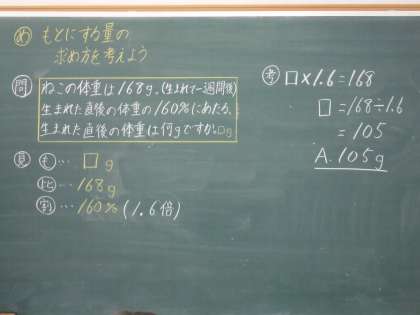 め もとにする量の
求め方を考えよう
問 ねこの体重は168g。(生まれて一週間後)
生まれた直後の体重の160%にあたる。
生まれた直後の体重は何gですか。□g
見 も… □g
比… 168g
割… 160% (1.6倍)
考 □×1.6=168
□=168÷1.6
=105
A.105g